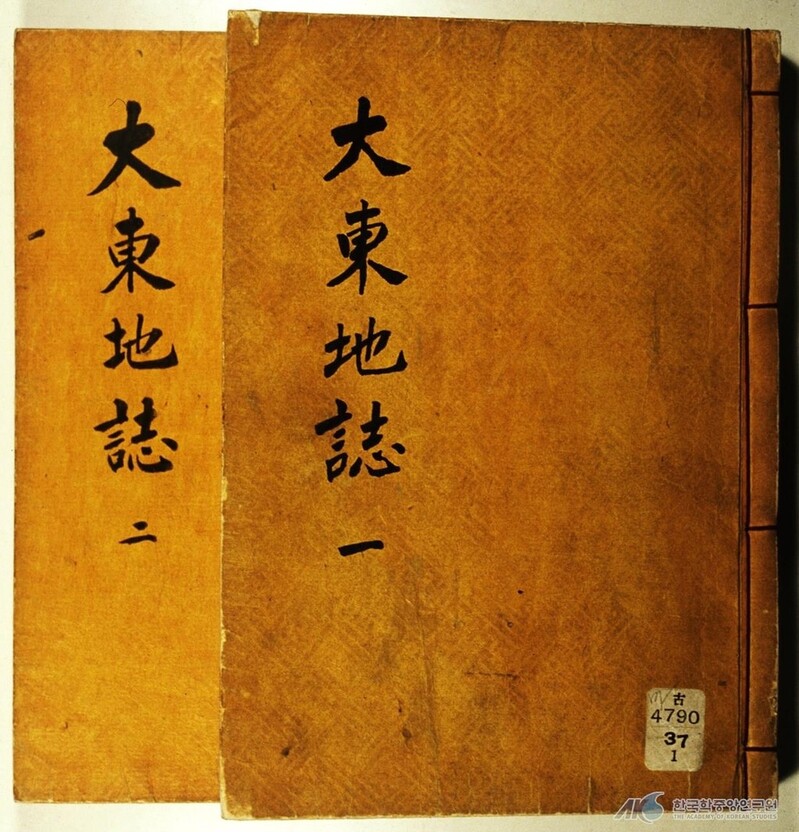 大東地誌 一
大東地誌 二
古
4790
37
1
한국학중앙연구원
THE ACADEMY OF KOREAN STUDIES